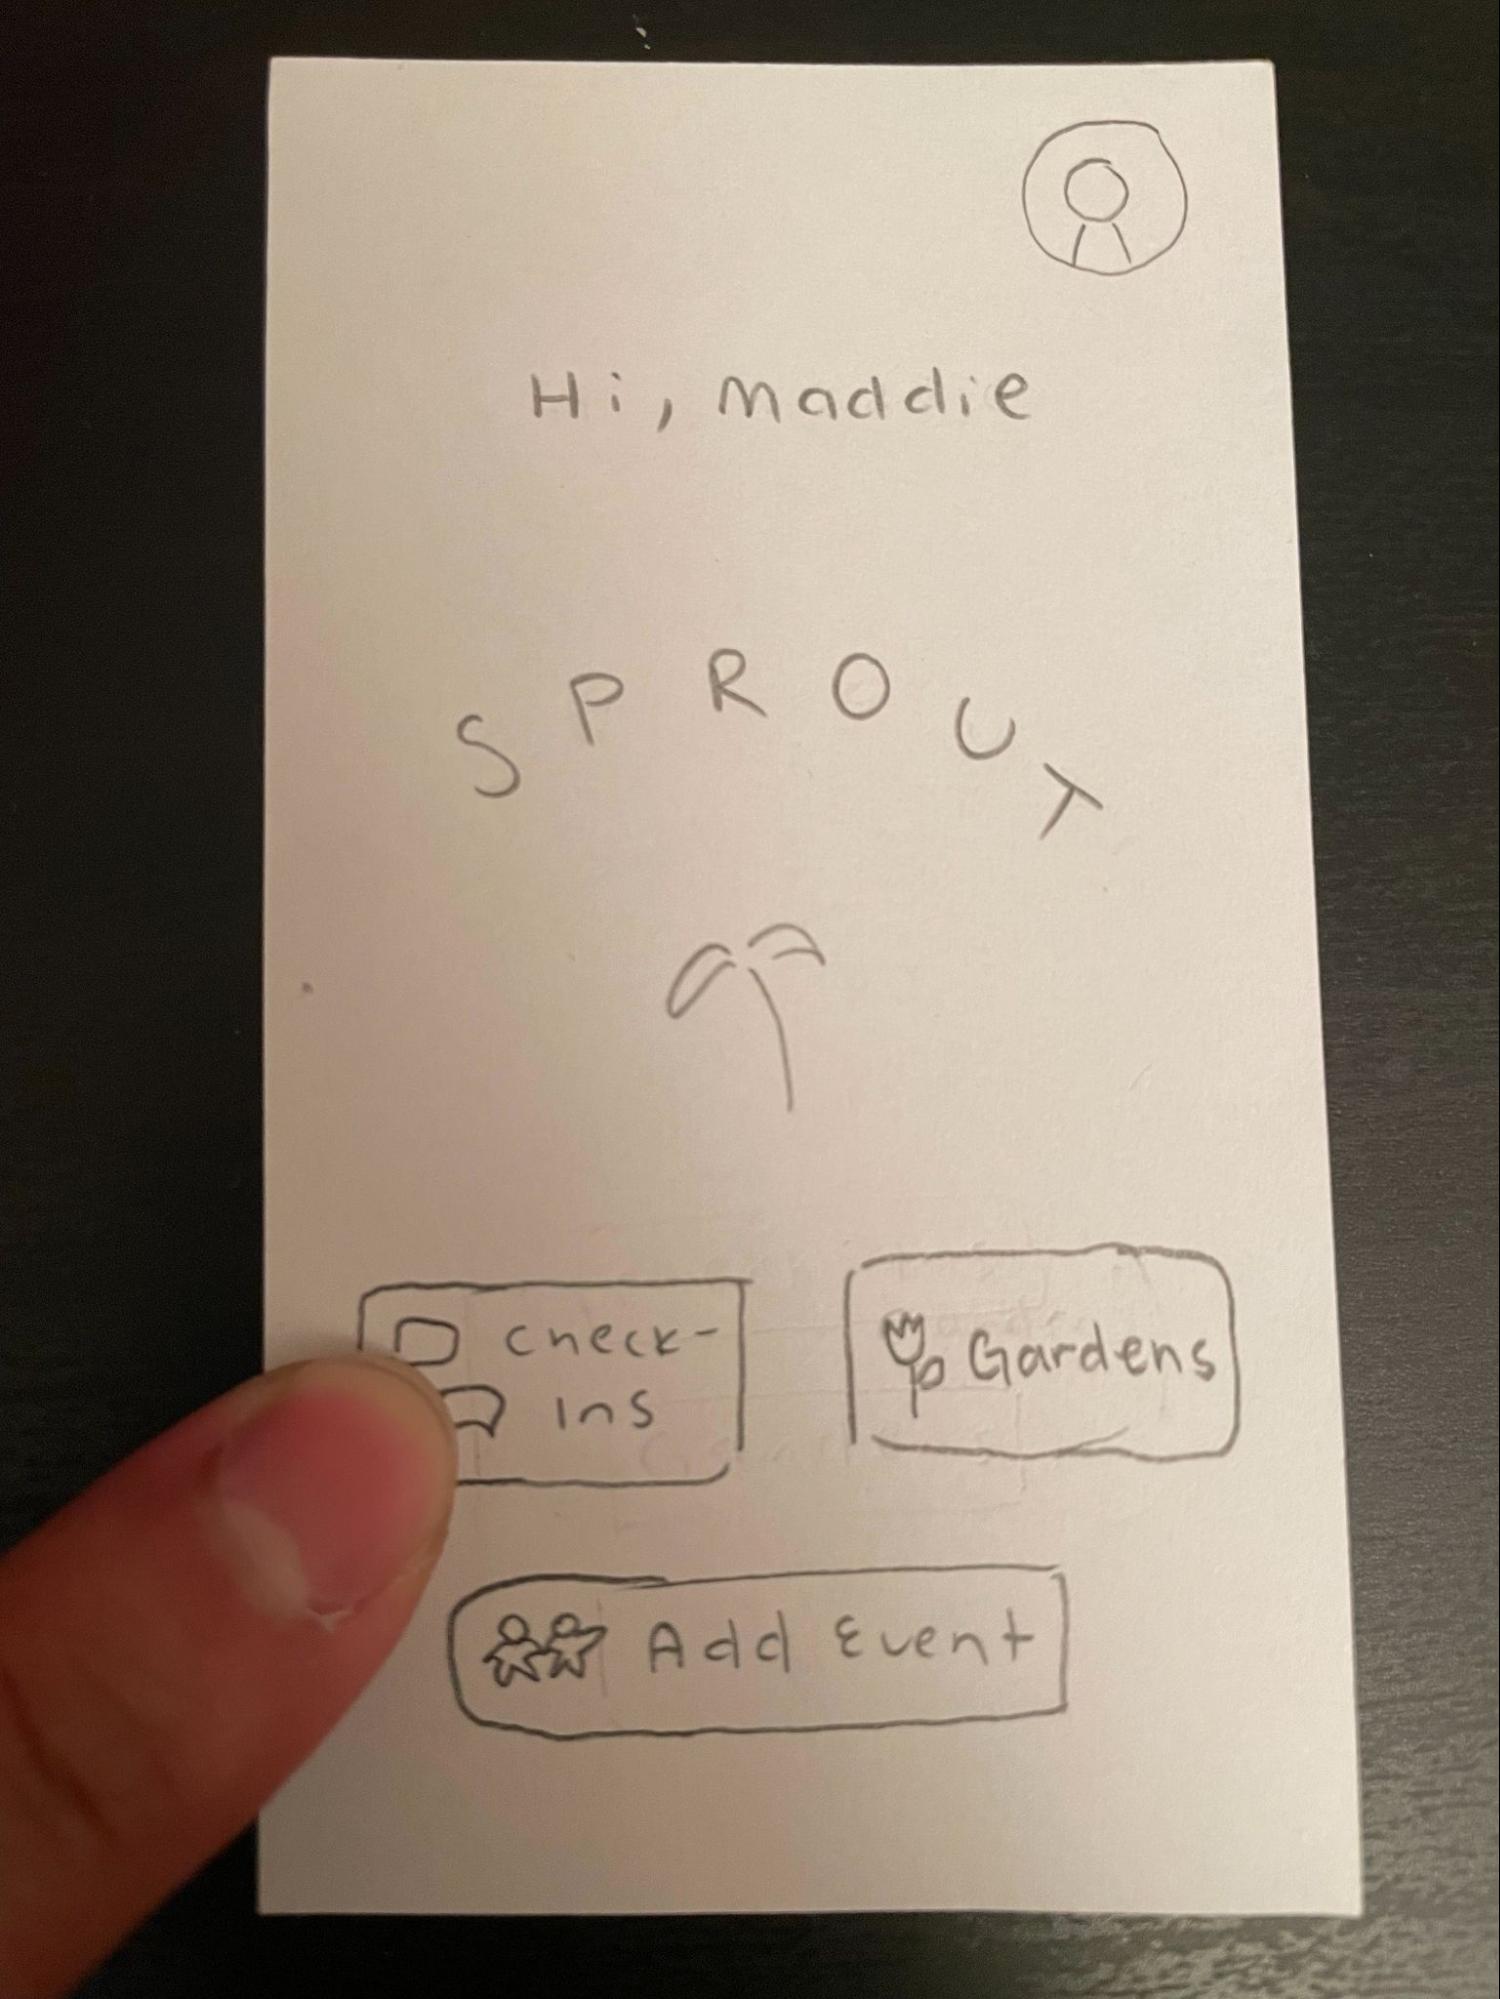 Hi, Maddie
SPROUT
Check-
Ins
Gardens
Add Event